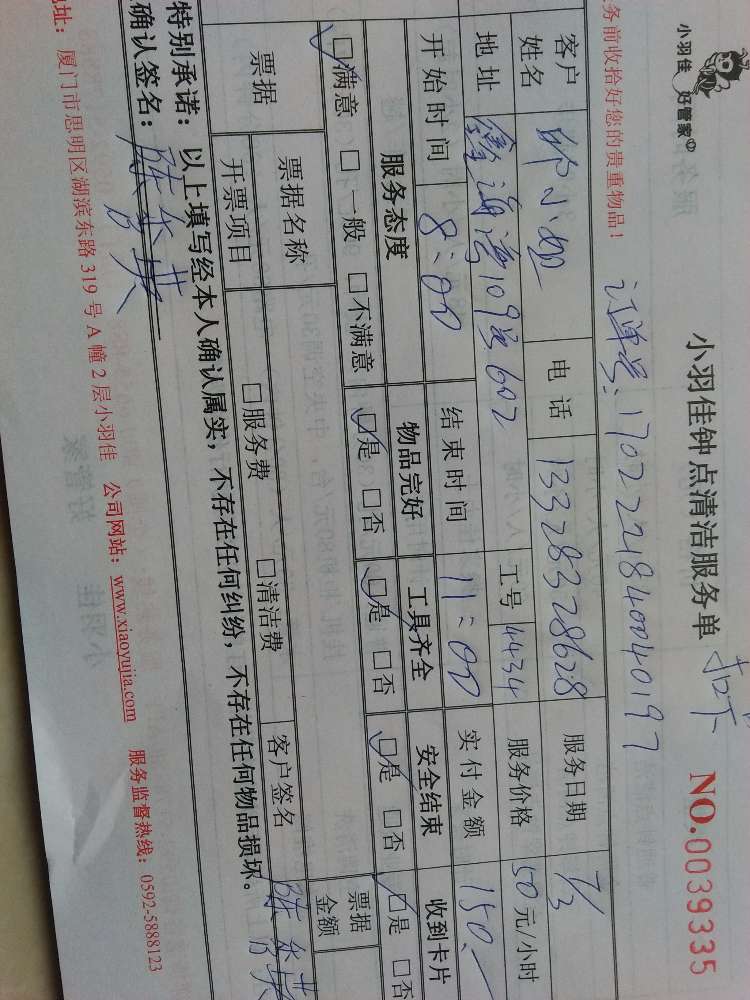 小羽佳 好管家
小羽佳钟点清洁服务单
NO.0039335
务前收拾好您的贵重物品！
订单号：170222184004019?
客户姓名 小姐 电话 13328328628 服务日期 7/3
地址 鑫海湾109号602 工号 4434 服务价格 50元/小时
开始时间 8:00 结束时间 11:00 实付金额 150.—
服务态度 物品完好 工具齐全 安全结束 收到卡片
☑满意 □一般 □不满意 ☑是 □否 ☑是 □否 ☑是 □否 ☑是 □否
票据 票据名称 客户签名 票据金额
开票项目 □服务费 □清洁费
特别承诺：以上填写经本人确认属实，不存在任何纠纷，不存在任何物品损坏。
确认签名：
地址：厦门市思明区湖滨东路319号A幢2层小羽佳 公司网站：www.xiaoyujia.com 服务监督热线：0592-5888123